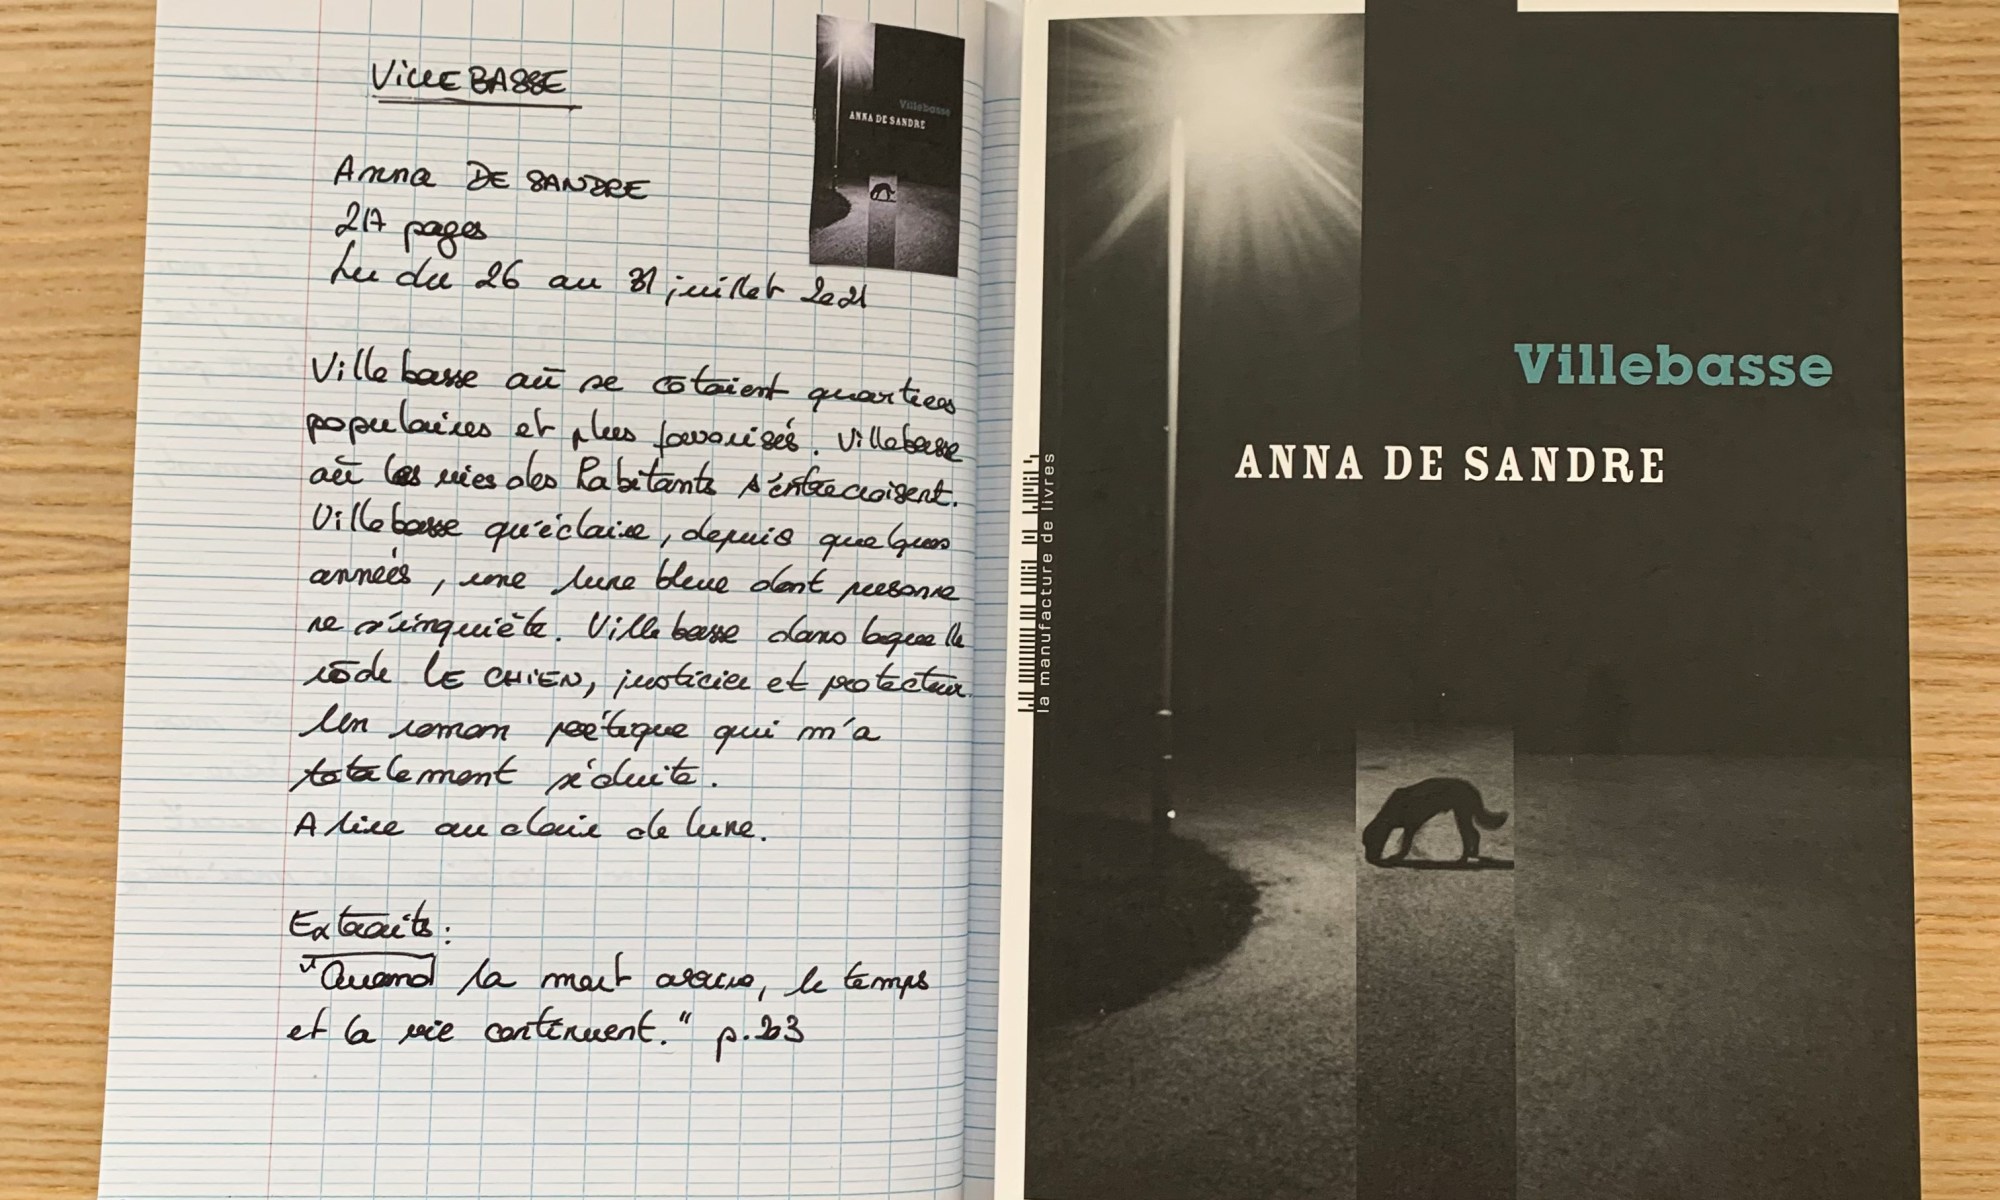 VILLEBASSE
Villebasse
ANNA DE SANDRE
Anna DE SANDRE
217 pages
Lu du 26 au 31 juillet 2021
Villebasse où se côtoient quartiers
populaires et plus favorisés. Villebasse
où les vies des habitants s'entrecroisent.
Villebasse qu'éclaire, depuis quelques
années, une lune bleue dont personne
ne s'inquiète. Villebasse dans laquelle
rôde LE CHIEN, justicier et protecteur.
Un roman poétique qui m'a
totalement séduite.
A lire au clair de lune.
Extraits :
"Quand la mort arrive, le temps
et la vie continuent." p.203
Villebasse
ANNA DE SANDRE
la manufacture de livres